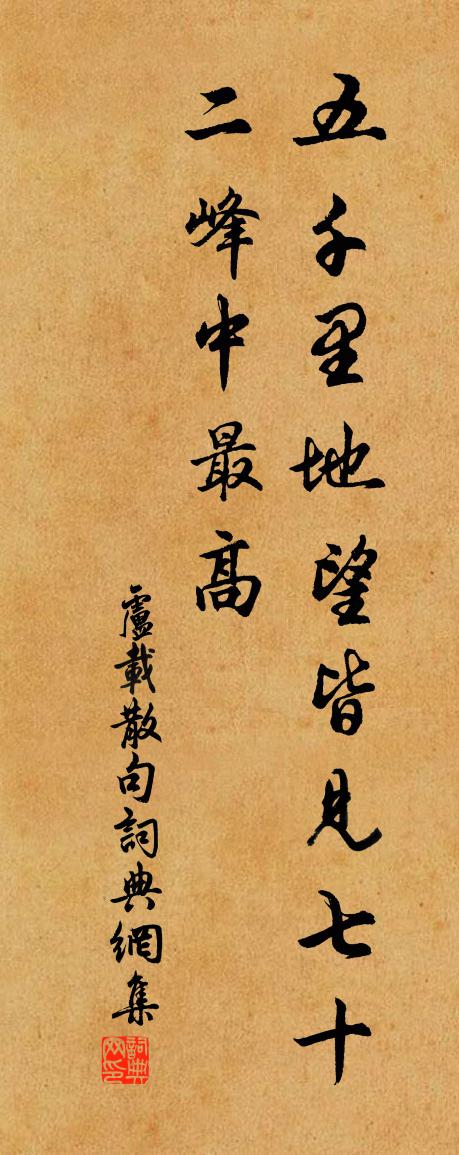 五千里地望皆見七十
二峰中最高
盧載散句詞典網集
詞典网印